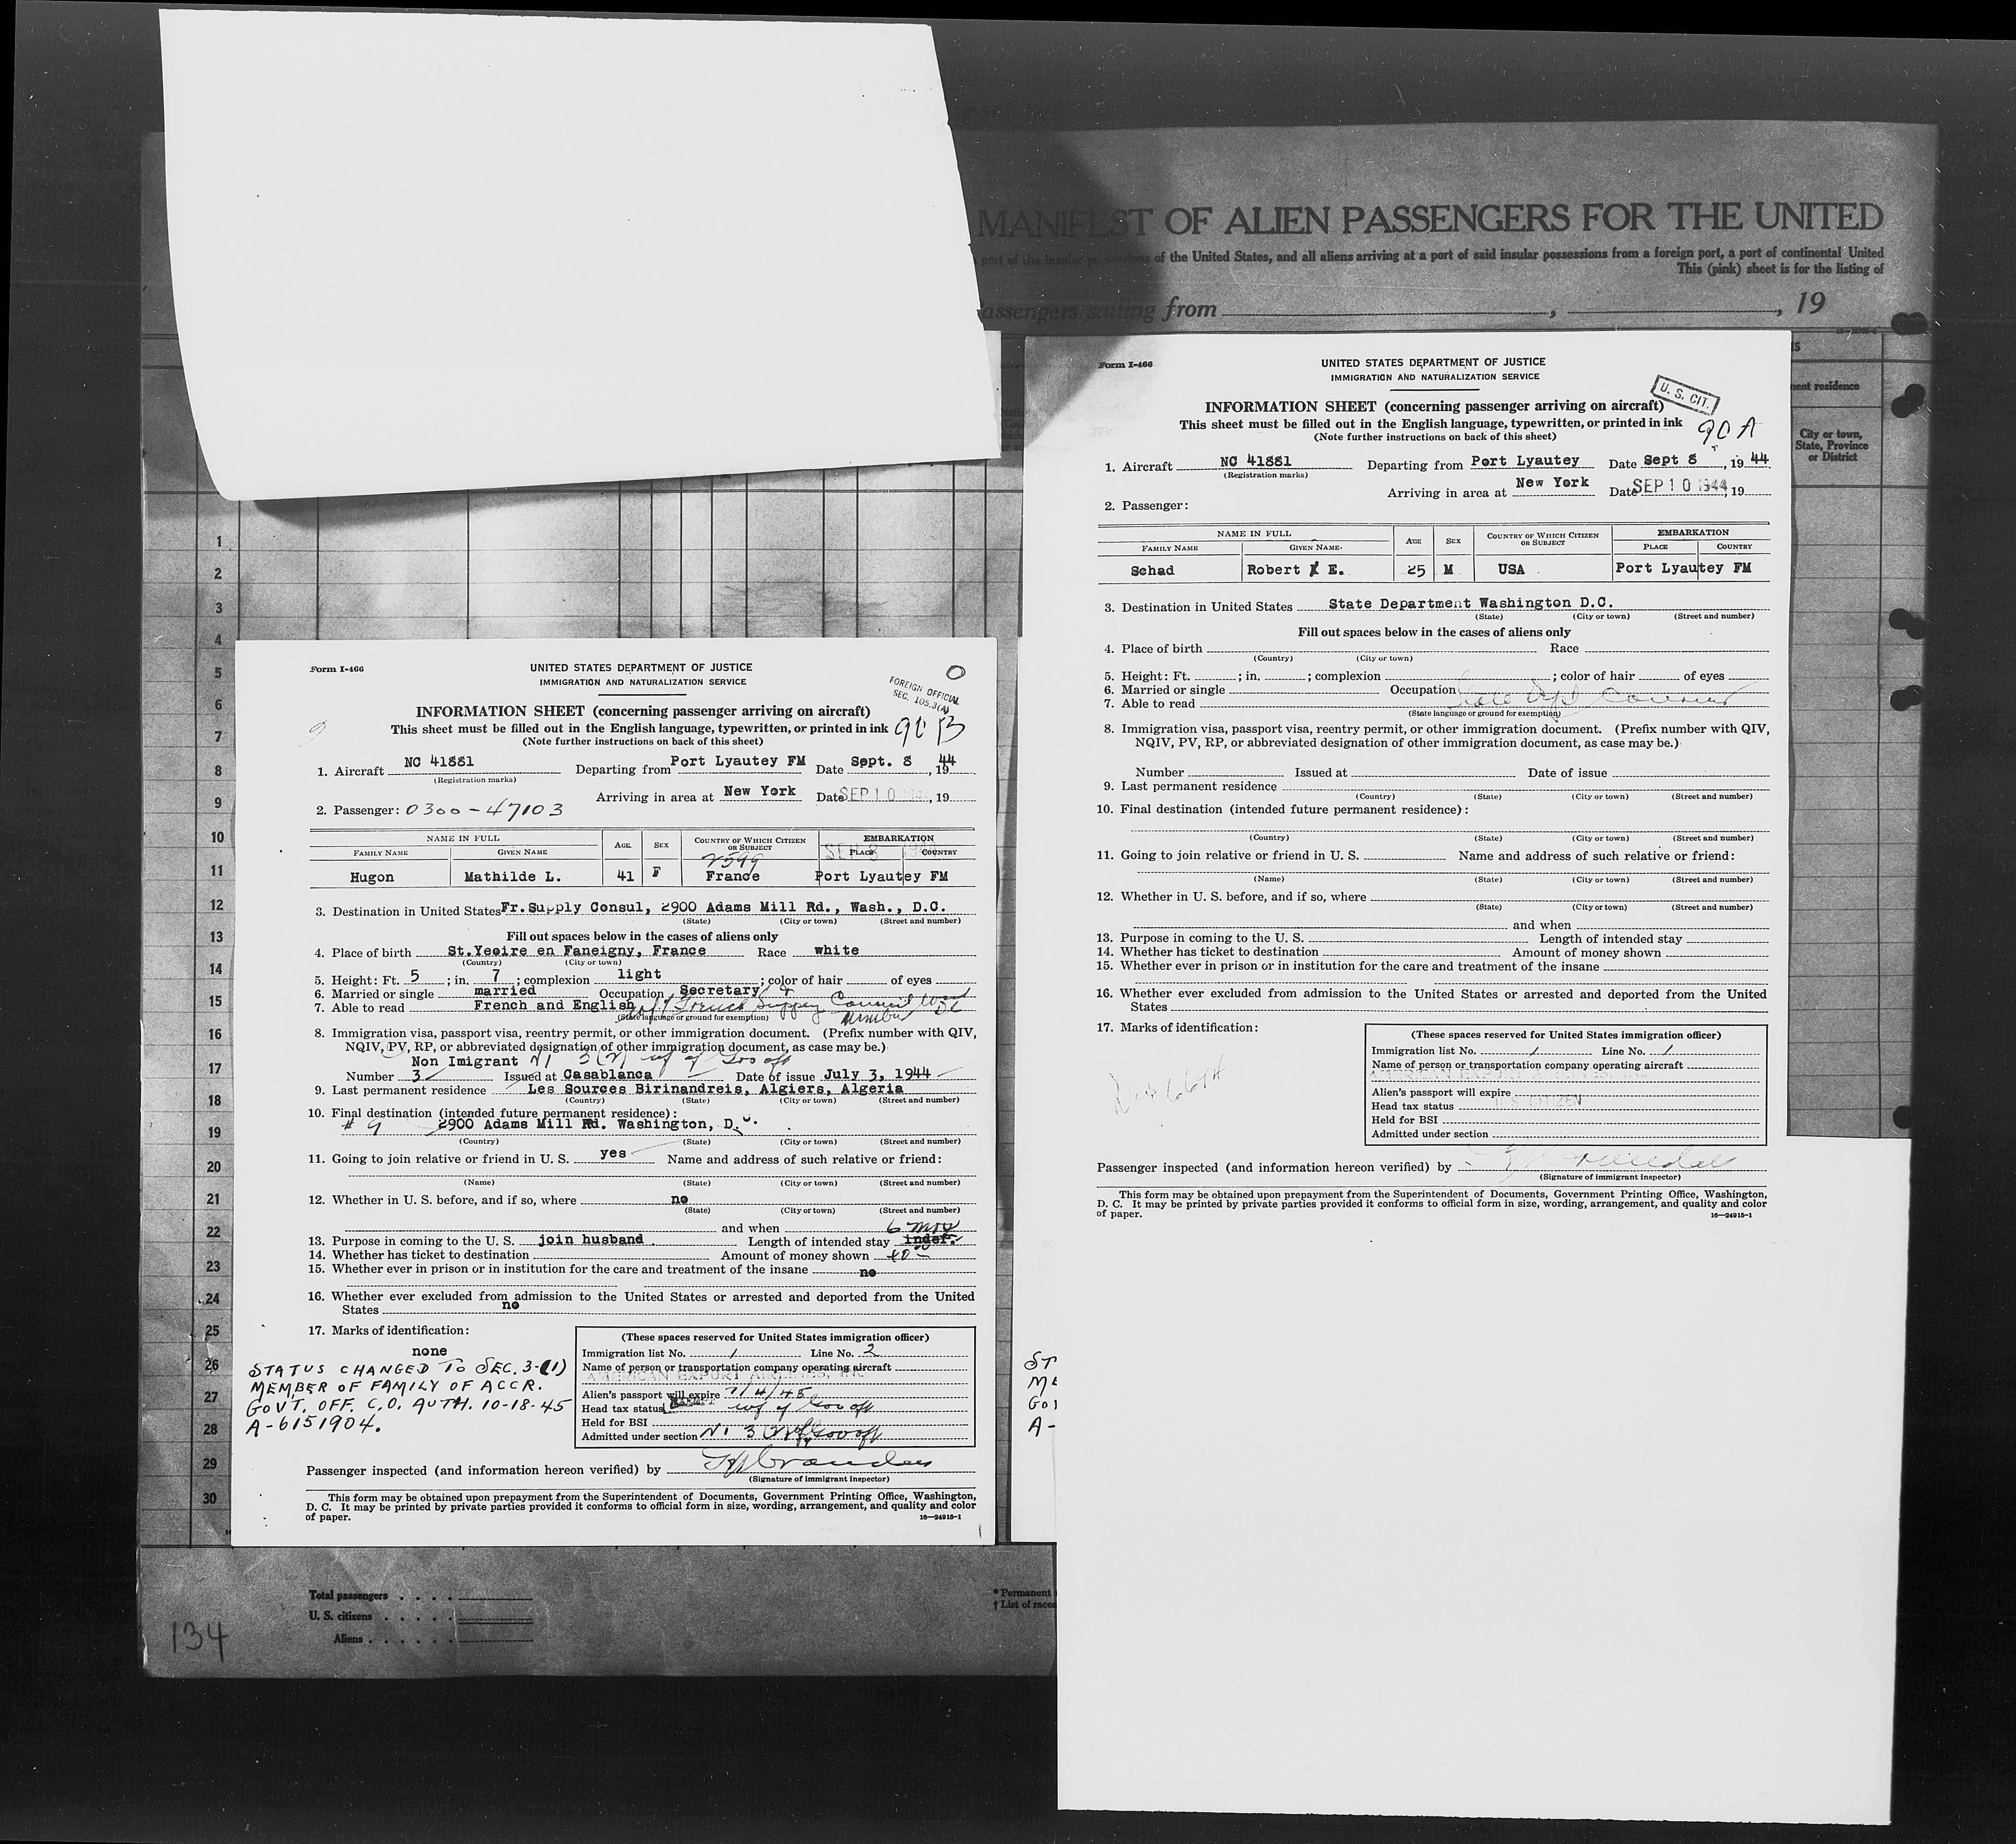 MANIFEST OF ALIEN PASSENGERS FOR THE UNITED
port of the insular possessions of the United States, and all aliens arriving at a port of said insular possessions from a foreign port, a part of continental United
This (pink) sheet is for the listing of
assengers sailing from , , 19
15
nent residence
City or town,
State, Province
or District
1
2
3
4
5
6
7
8
9
10
11
12
13
14
15
16
17
18
19
20
21
22
23
24
25
26
27
28
29
30
Form I-466
UNITED STATES DEPARTMENT OF JUSTICE
IMMIGRATION AND NATURALIZATION SERVICE
O
FOREIGN OFFICIAL
SEC. 105.3(A)
INFORMATION SHEET (concerning passenger arriving on aircraft)
This sheet must be filled out in the English language, typewritten, or printed in ink 90 B
(Note further instructions on back of this sheet)
1. Aircraft NC 41881 Departing from Port Lyautey FM Date Sept. 8, 1944
(Registration marks)
Arriving in area at New York Date SEP 10 1944, 19
2. Passenger: 0300-47103
NAME IN FULL AGE SEX COUNTRY OF WHICH CITIZEN OR SUBJECT EMBARKATION
FAMILY NAME GIVEN NAME PLACE COUNTRY
2599
Hugon Mathilde L. 41 F France Port Lyautey FM
3. Destination in United States Fr.Supply Consul, 2900 Adams Mill Rd., Wash., D.C.
(State) (City or town) (Street and number)
Fill out spaces below in the cases of aliens only
4. Place of birth St.Yeoire en Faneigny, France Race white
(Country) (City or town)
5. Height: Ft. 5 ; in. 7 ; complexion light ; color of hair of eyes
6. Married or single married Occupation Secretary
7. Able to read French and English French Supply Council
(State language or ground for exemption)
8. Immigration visa, passport visa, reentry permit, or other immigration document. (Prefix number with QIV,
NQIV, PV, RP, or abbreviated designation of other immigration document, as case may be.)
Non Imigrant
Number 3 Issued at Casablanca Date of issue July 3, 1944
9. Last permanent residence Les Sources Birinandreis, Algiers, Algeria
(Country) (State) (City or town) (Street and number)
10. Final destination (intended future permanent residence):
# 9 2900 Adams Mill Rd. Washington, D.C.
(Country) (State) (City or town) (Street and number)
11. Going to join relative or friend in U. S. yes Name and address of such relative or friend:
(Name) (State) (City or town) (Street and number)
12. Whether in U. S. before, and if so, where no
(State) (City or town) (Street and number)
and when
6 mos
13. Purpose in coming to the U. S. join husband Length of intended stay indef.
14. Whether has ticket to destination Amount of money shown
15. Whether ever in prison or in institution for the care and treatment of the insane no
16. Whether ever excluded from admission to the United States or arrested and deported from the United
States no
17. Marks of identification:
none
STATUS CHANGED TO SEC. 3-(1)
MEMBER OF FAMILY OF ACCR.
GOVT. OFF. C.O. AUTH. 10-18-45
A-6151904.
(These spaces reserved for United States immigration officer)
Immigration list No. 1 Line No. 2
Name of person or transportation company operating aircraft
AMERICAN EXPORT AIRLINES, INC
Alien's passport will expire 7/4/45
Head tax status EXEMPT wf of Gov off
Held for BSI
Admitted under section
Passenger inspected (and information hereon verified) by
(Signature of immigrant inspector)
This form may be obtained upon prepayment from the Superintendent of Documents, Government Printing Office, Washington,
D. C. It may be printed by private parties provided it conforms to official form in size, wording, arrangement, and quality and color
of paper. 16—24915-1
Total passengers . . . .
U. S. citizens . . . . .
Aliens . . . . . .
134
* Permanent
† List of races
Form I-466
UNITED STATES DEPARTMENT OF JUSTICE
IMMIGRATION AND NATURALIZATION SERVICE
U. S. CIT.
INFORMATION SHEET (concerning passenger arriving on aircraft)
This sheet must be filled out in the English language, typewritten, or printed in ink 90 A
(Note further instructions on back of this sheet)
1. Aircraft NC 41881 Departing from Port Lyautey Date Sept 8, 1944
(Registration marks)
Arriving in area at New York Date SEP 10 1944, 19
2. Passenger:
NAME IN FULL AGE SEX COUNTRY OF WHICH CITIZEN OR SUBJECT EMBARKATION
FAMILY NAME GIVEN NAME PLACE COUNTRY
Schad Robert E. 25 M USA Port Lyautey FM
3. Destination in United States State Department Washington D.C.
(State) (City or town) (Street and number)
Fill out spaces below in the cases of aliens only
4. Place of birth Race
(Country) (City or town)
5. Height: Ft. ; in. ; complexion ; color of hair of eyes
6. Married or single Occupation State Dept
7. Able to read
(State language or ground for exemption)
8. Immigration visa, passport visa, reentry permit, or other immigration document. (Prefix number with QIV,
NQIV, PV, RP, or abbreviated designation of other immigration document, as case may be.)
Number Issued at Date of issue
9. Last permanent residence
(Country) (State) (City or town) (Street and number)
10. Final destination (intended future permanent residence):
(Country) (State) (City or town) (Street and number)
11. Going to join relative or friend in U. S. Name and address of such relative or friend:
(Name) (State) (City or town) (Street and number)
12. Whether in U. S. before, and if so, where
(State) (City or town) (Street and number)
and when
13. Purpose in coming to the U. S. Length of intended stay
14. Whether has ticket to destination Amount of money shown
15. Whether ever in prison or in institution for the care and treatment of the insane
16. Whether ever excluded from admission to the United States or arrested and deported from the United
States
17. Marks of identification:
(These spaces reserved for United States immigration officer)
Immigration list No. 1 Line No. 1
Name of person or transportation company operating aircraft
AMERICAN EXPORT AIRLINES, INC
Alien's passport will expire
Head tax status U.S. CITIZEN
Held for BSI
Admitted under section
Passenger inspected (and information hereon verified) by
(Signature of immigrant inspector)
This form may be obtained upon prepayment from the Superintendent of Documents, Government Printing Office, Washington,
D. C. It may be printed by private parties provided it conforms to official form in size, wording, arrangement, and quality and color
of paper. 16—24915-1
ST
ME
GO
A-